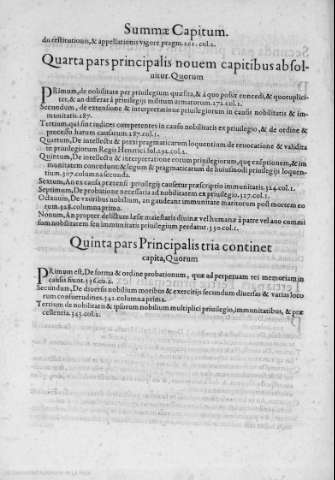 Summæ Capitum.
do restitutionũ, & appellationis vigore pragm. 101. col. 2.
Quarta pars principalis nouem capitibus absol-
uitur. Quorum
PRimum, de nobilitate per priuilegium quæsita, & à quo possit concedi, & quotuplici-
ter, & an differat à priuilegijs militum armatorum. 272. col. 1.
Secundum, de extensione & interpretatione priuilegiorum in causis nobilitatis & im-
munitatis. 287.
Tertium, qui sint iudices competentes in causis nobilitatis ex priuilegio, & de ordine &
processu harum causarum. 287. col. 1.
Quartum, De intellectu & praxi pragmaticarum loquentium de reuocatione & validita
te priuilegiorum Regis Henrici fol. 292. col. 1.
Quintum, De intellectu & interpretatione eorum priuilegiorum, quæ exẽptionem, & im
munitatem concedunt & legum & pragmaticarum de huiusmodi priuilegijs loquen-
tium. 307. columna secunda.
Sextum, An ex causa præsenti priuilegij causetur præscriptio immunitatis. 324. col. 1.
Septimum, De probatione necessaria ad nobilitatem ex priuilegio. 327. col. 1.
Octauum, De vxoribus nobilium, an gaudeant immunitate maritorum post mortem eo
rum. 328. columna prima.
Nonum, An propter delictum læsæ maiestatis diuinæ vel humanæ à patre vel auo commi
sum nobilitatem seu immunitatis priuilegium perdatur. 330. col. 1.
Quinta pars Principalis tria continet
capita, Quorum
PRimum est, De forma & ordine probationum, quæ ad perpetuam rei memoriam in
causis fiunt. 336. co. 2.
Secundum, De diuersis nobilium moribus & exercitijs secundum diuersas & varias loco
rum consuetudines. 341. columna prima.
Tertium de nobilitatis & ipsorum nobilium multiplici priuilegio, immunitatibus, & præ
cellentia. 343. col. 1.